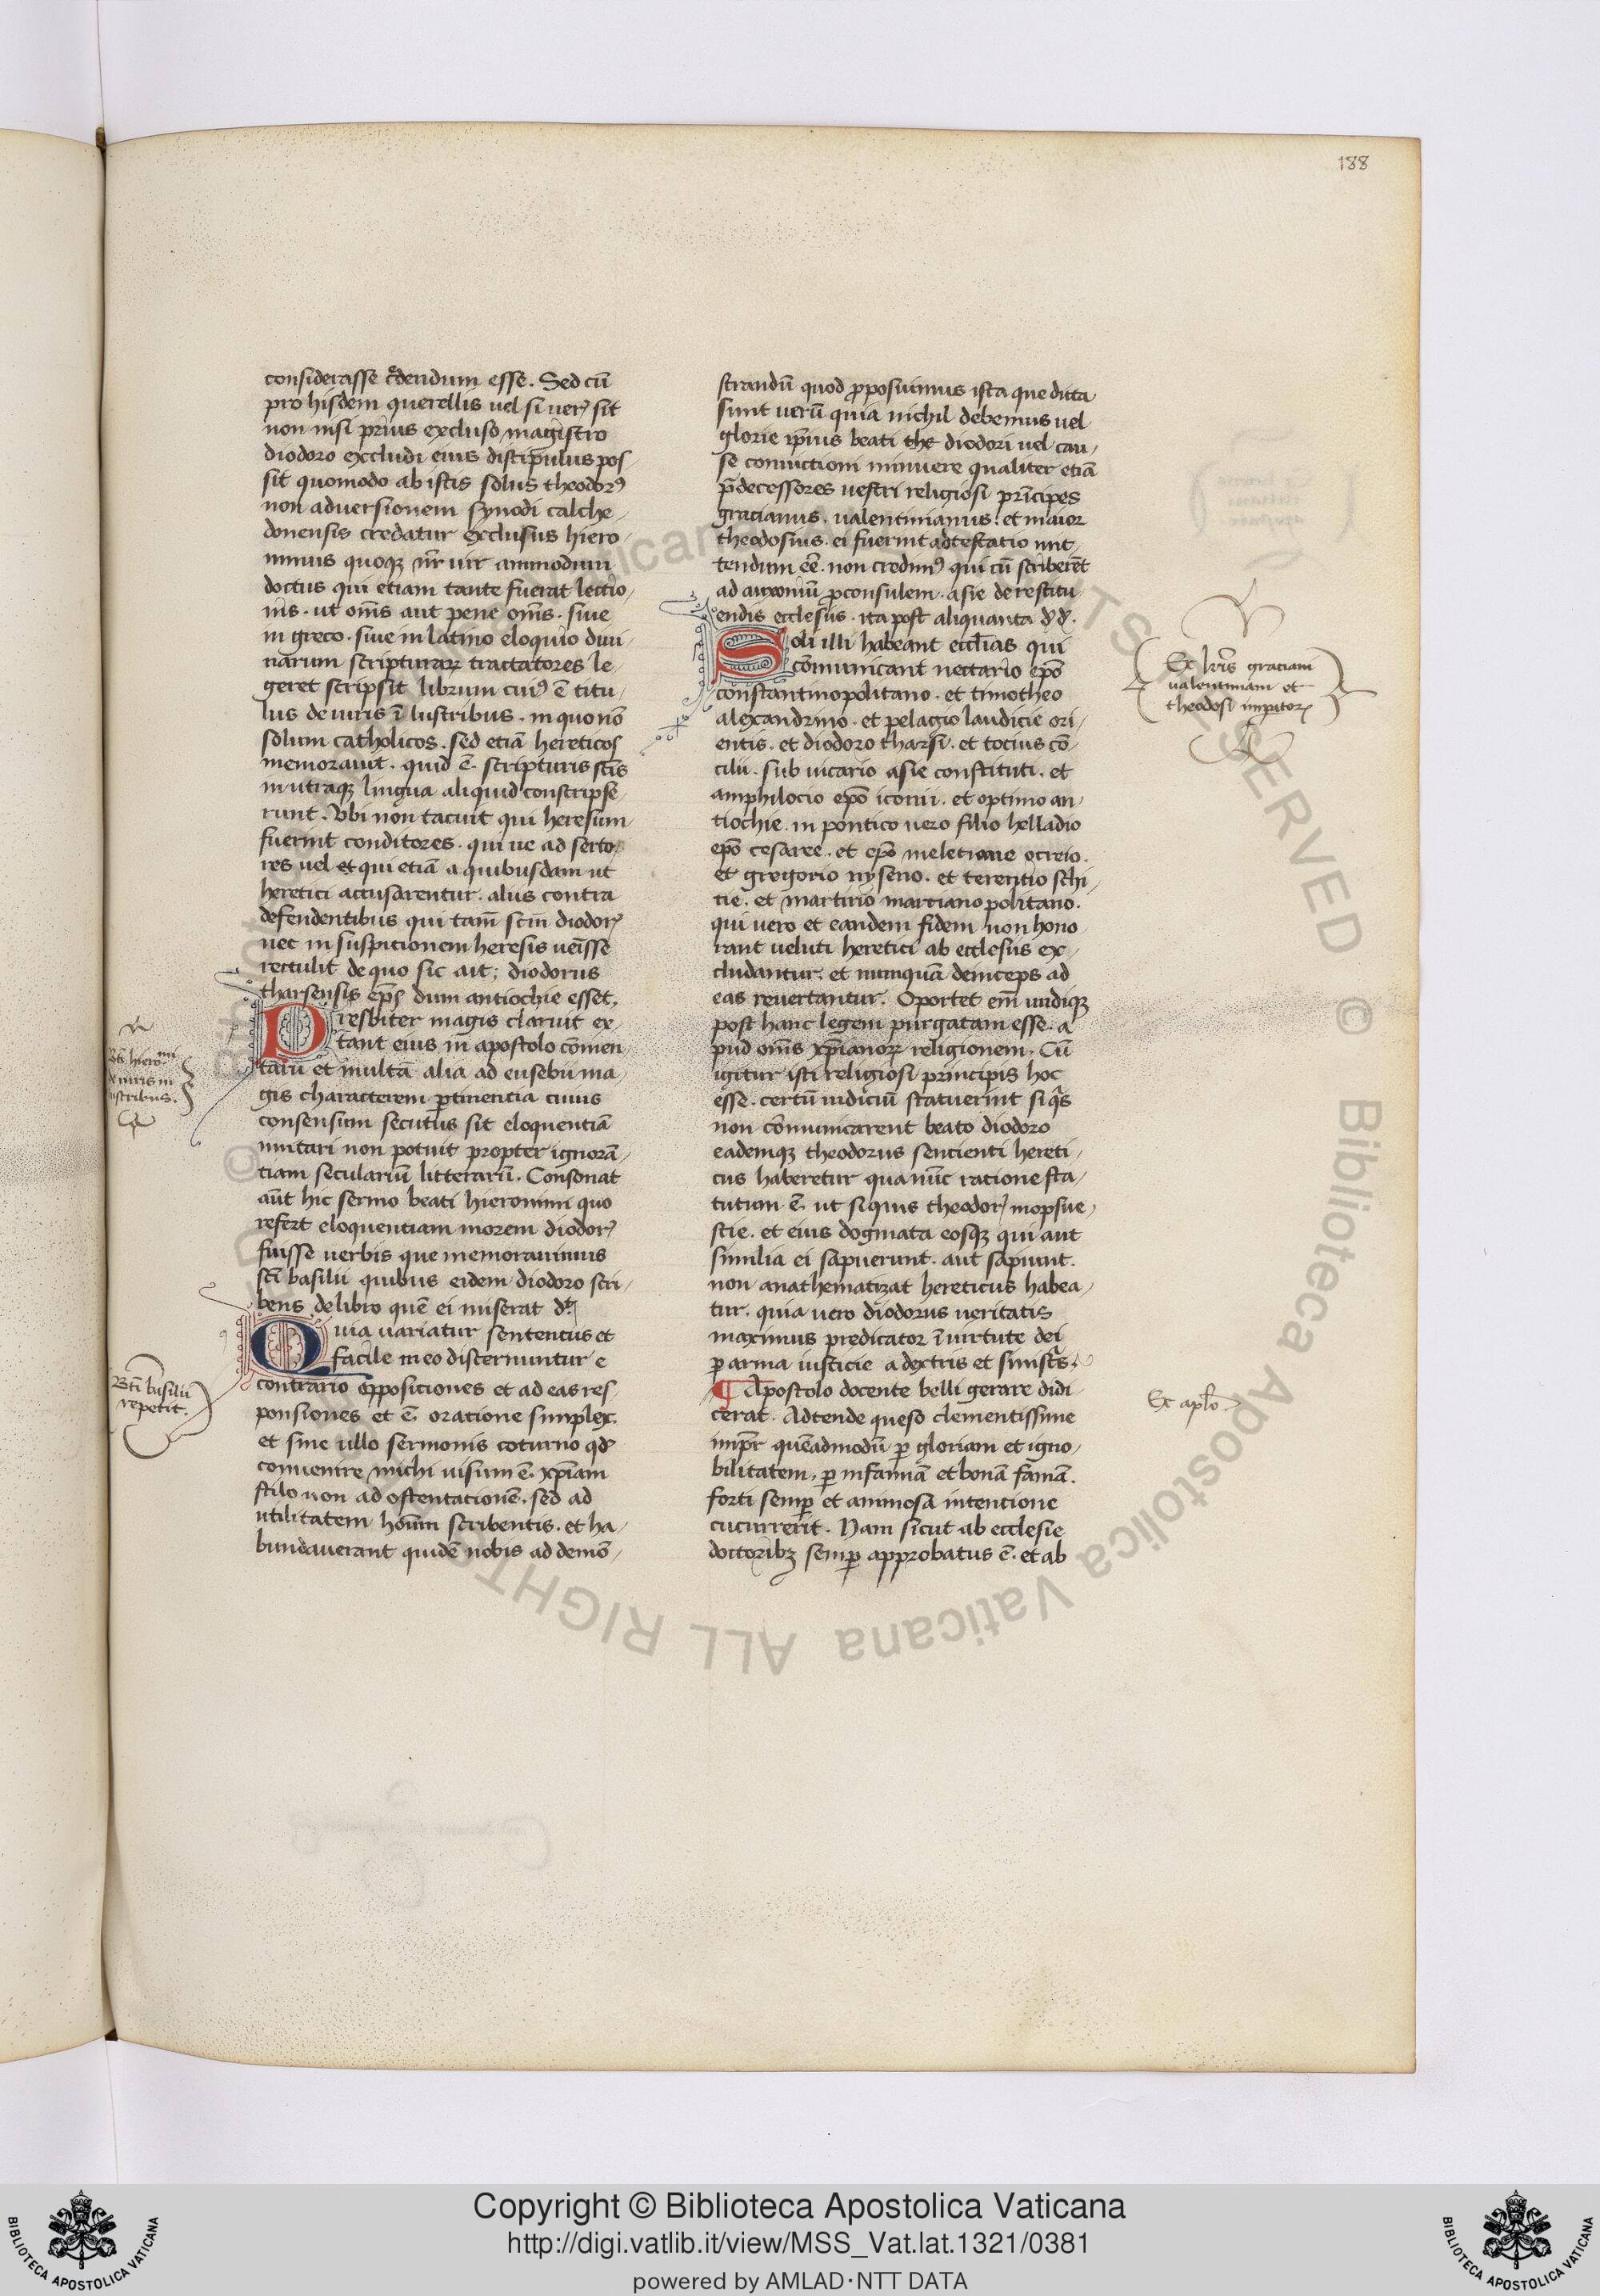 188
considerasse c̃dendum esse. Sed cū
pro hisdem querellis uel si uerꝰ sit
non nisi prius excluso magistro
diodoro excludi eius discipulus pos-
sit quomodo ab istis solus theodorꝰ
non aduersionem synodi calche-
donensis credatur exclusus hiero-
nimus quoqꝫ nr̄ uir ammodum
doctus qui etiam tante fuerat lectio-
nis. ut oms̄ aut pene oms̄. siue
in greco. siue in latino eloquio diui-
narum scripturaꝝ tractatores le-
geret scripsit librum cuiꝰ ē titu-
lus de uiris ī lustribus. in quo nō
solum catholicos. sed etiā hereticos
memorauit. quid ē. scripturis sc̄is
in utraqꝫ lingua aliquid conscripse-
runt. Vbi non tacuit qui heresum
fuerint conditores. qui ue ad serto-
res uel et qui etiā a quibusdam ut
heretici accusarentur. aliis contra
defendentibus qui tam̄ scm̄ diodorꝰ
nec in suspicionem heresis ueīsse
rectulit de quo sic ait; diodorus
tharsensis ep̄s dum antiochie esset.
Presbiter magis claruit ex-
tant eius in apostolo cōmen-
tarii et multa alia ad eusebii ma-
gis characterem ꝑtinentia cuius
consensum secutus sit eloquentiā
imitari non potuit propter ignorā-
tiam seculariū litterarū. Consonat
aūt hic sermo beati hieronimi quo
refert eloquentiam morem diodorꝰ
fuisse uerbis que memorauimus
sc̄i basilii quibus eidem diodoro scri-
bens de libro quē ei miserat dt̄
Quia uariatur sentenciis et
facile in eo discernuntur e
contrario opposiciones et ad eas res-
ponsiones et ē. oratione simplex.
et sine ullo sermonis coturno qd̄
conuenire michi uisum ē. xp̄iam
stilo non ad ostentacionē. sed ad
utilitatem hoīum scribentis. et ha-
bundauerant quidē nobis ad demō-
Bt̄i hieronimi
de uiris in
lustribus.
Bt̄i basilii
repetit.
strandū quod ꝓposuimus ista que dicta
sunt uerū quia nichil debemus uel
glorie ip̄ius beati the diodori uel cau-
se conuictioni minuere qualiter etiā
p̄decessores uestri religiosi principes
gracianus. ualentinianus. et maior
theodosius. ei fuerint adtestatio mit-
tendum eē. non credimꝰ qui cū scriberēt
ad auxoniū ꝓconsulem. asie de restitu-
endis ecclesiis. ita post aliquanta d̄d̄.
Soli illi habeant eccl̄ias qui
cōmunicant nectario ep̄o
constantinopolitano. et timotheo
alexandrino. et pelagio laudicie ori-
entis. et diodoro tharsi. et tocius cō-
cilii. sub uicario asie constituti. et
amphilocio ep̄o iconii. et optimo an-
tiochie. in pontico uero filio helladio
ep̄o cesaree. et ep̄o meletiane ocreio.
et gregorio nyseno. et terentio schi-
tie. et martirio marcianopolitano.
qui uero et eandem fidem non hono-
rant ueluti heretici ab ecclesiis ex-
cludantur. et numquā deinceps ad
eas reuertantur. Oportet em̄ undiqꝫ
post hanc legem purgatam esse. a
pud oms̄ xp̄ianoꝝ religionem. Cū
igitur isti religiosi principis hoc
esse. certū iudiciū statuerint si qͥs
non cōmunicarent beato diodoro
eademqꝫ theodorus sencienti hereti-
cus haberetur qua nūc ratione sta-
tutum ē. ut si quis theodorꝰ mopsue-
stie. et eius dogmata eosqꝫ qui aut
similia ei sapuerunt. aut sapiunt.
non anathematizat hereticus habea-
tur. quia uero diodorus ueritatis
maximus predicator ī uirtute dei
ꝑ arma iusticie a dextris et sinistͥs.
¶ Apostolo docente belli gerare didi-
cerat. Adtende queso clementissime
impr̄ quēadmodū ꝑ gloriam et igno-
bilitatem. ꝑ infamiā et bonā famā.
forti semꝑ et animosa intencione
cucurrerit. Nam sicut ab ecclesie
doctoribꝫ semꝑ approbatus ē. et ab
Ex lr̄is graciani
ualentiniani et
theodosi impitorꝝ
Ex apl̄o
Copyright © Biblioteca Apostolica Vaticana
http://digi.vatlib.it/view/MSS_Vat.lat.1321/0381
powered by AMLAD·NTT DATA
BIBLIOTECA APOSTOLICA VATICANA
BIBLIOTECA APOSTOLICA VATICANA